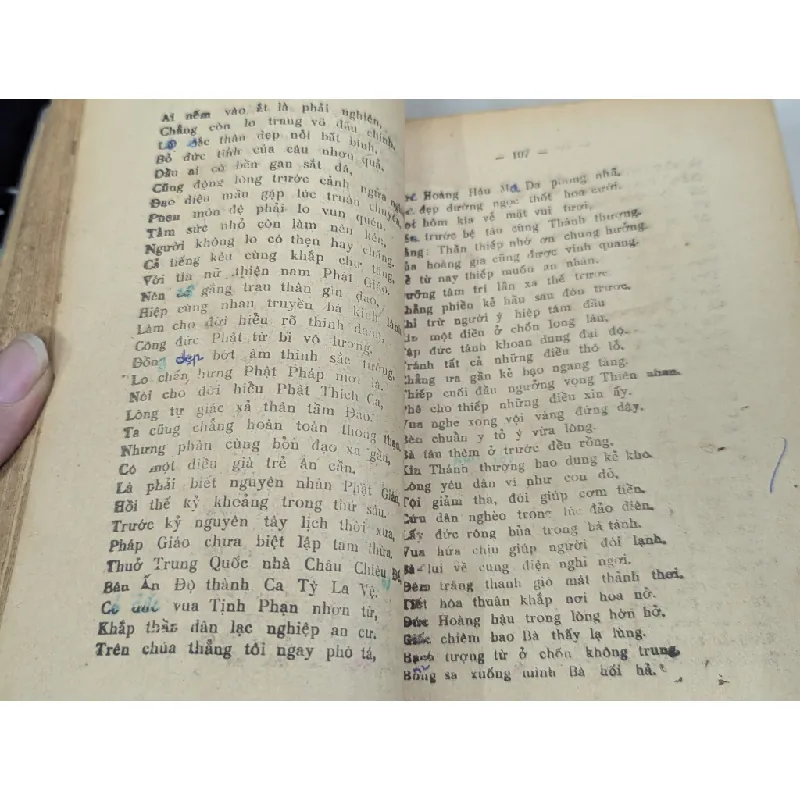 Ai nếm vào ắt là phải nghiện,
Chẳng còn lo trung vô đầu chính,
sắc thân đẹp nổi bất bình,
Bỏ đức tính của câu nhơn quả,
Dầu ai có bền gan sắt đá,
Cũng động lòng trước cảnh ngửa
Đạo diệu màn gặp lúc truân chuyên,
môn đệ phải lo vun quén,
Tầm sức nhỏ còn làm nên kén,
Người không lo có thẹn hay chăng,
Cả tiếng kêu cùng khắp cho tăng,
Với tín nữ thiện nam Phật Giáo,
Nên cố gắng trau thân gìn đạo,
Hiệp cùng nhau truyền bá kinh lành,
Làm cho đời hiểu rõ thinh danh,
Công đức Phật từ bi vô lượng,
Đồng đẹp bớt âm thinh sắc tướng,
Lo chấn hưng Phật Pháp mới là,
Nói cho đời hiểu Phật Thích Ca,
Lòng tự giác xả thân tầm Đạo.
Ta cũng chẳng hoàn toàn thông thạo,
Nhưng phận cùng bổn đạo xa gần,
Có một điều già trẻ ân cần,
Là phải biết nguyên nhân Phật Giáo,
Hồi thế kỷ khoảng trong thứ sáu.
Trước kỷ nguyên tây lịch thời xưa,
Pháp Giáo chưa biệt lập tam thừa.
Thuở Trung Quốc nhà Châu Chiêu Đế,
Bên Ấn Độ thành Ca Tỳ La Vệ,
Có đức vua Tịnh Phạn nhơn từ,
Khắp thần dân lạc nghiệp an cư.
Trên chúa thẳng tôi ngay phò tá,
— 107 —
Hoàng Hậu Ma Da phong nhã,
đẹp dường ngọc thốt hoa cười.
hôm kia vẻ mặt vui tươi,
trước bệ tâu cùng Thánh thượng.
Thần thiếp nhờ ơn chung hưởng.
hoàng gia cũng được vinh quang.
từ nay thiếp muốn an nhàn.
tâm trí lân xa thế trược
phiền kẻ hầu sau đón trước.
trừ người ý hiệp tâm đầu
một điện ở chốn long lâu,
đức tánh khoan dung đại độ.
tất cả những điều thô lỗ.
ưa gần kẻ bạo ngang tàng.
cúi đầu ngưỡng vọng Thiên nhan.
cho thiếp những điều xin ấy.
nghe xong vội vàng đứng dậy.
chuẩn y tỏ ý vừa lòng.
tâu thêm ở trước đền rồng.
Xin Thánh thượng bao dung kẻ khó.
Lòng yêu dân ví như con đỏ,
giảm tha, đói giúp cơm tiền.
Cứu dân nghèo trong lúc đảo điên.
Lấy đức rộng bủa trong bá tánh.
Vua hứa chịu giúp người đói lạnh.
lui về cung điện nghỉ ngơi.
Đêm trăng thanh gió mát thảnh thơi.
Tiết hóa thuân khắp nơi hoa nở.
Đức Hoàng hậu trong lòng hớn hở.
Giấc chiêm bao Bà thấy lạ lùng.
Bạch tượng từ ở chốn không trung.
Bỗng sa xuống mình Bà hối hả.